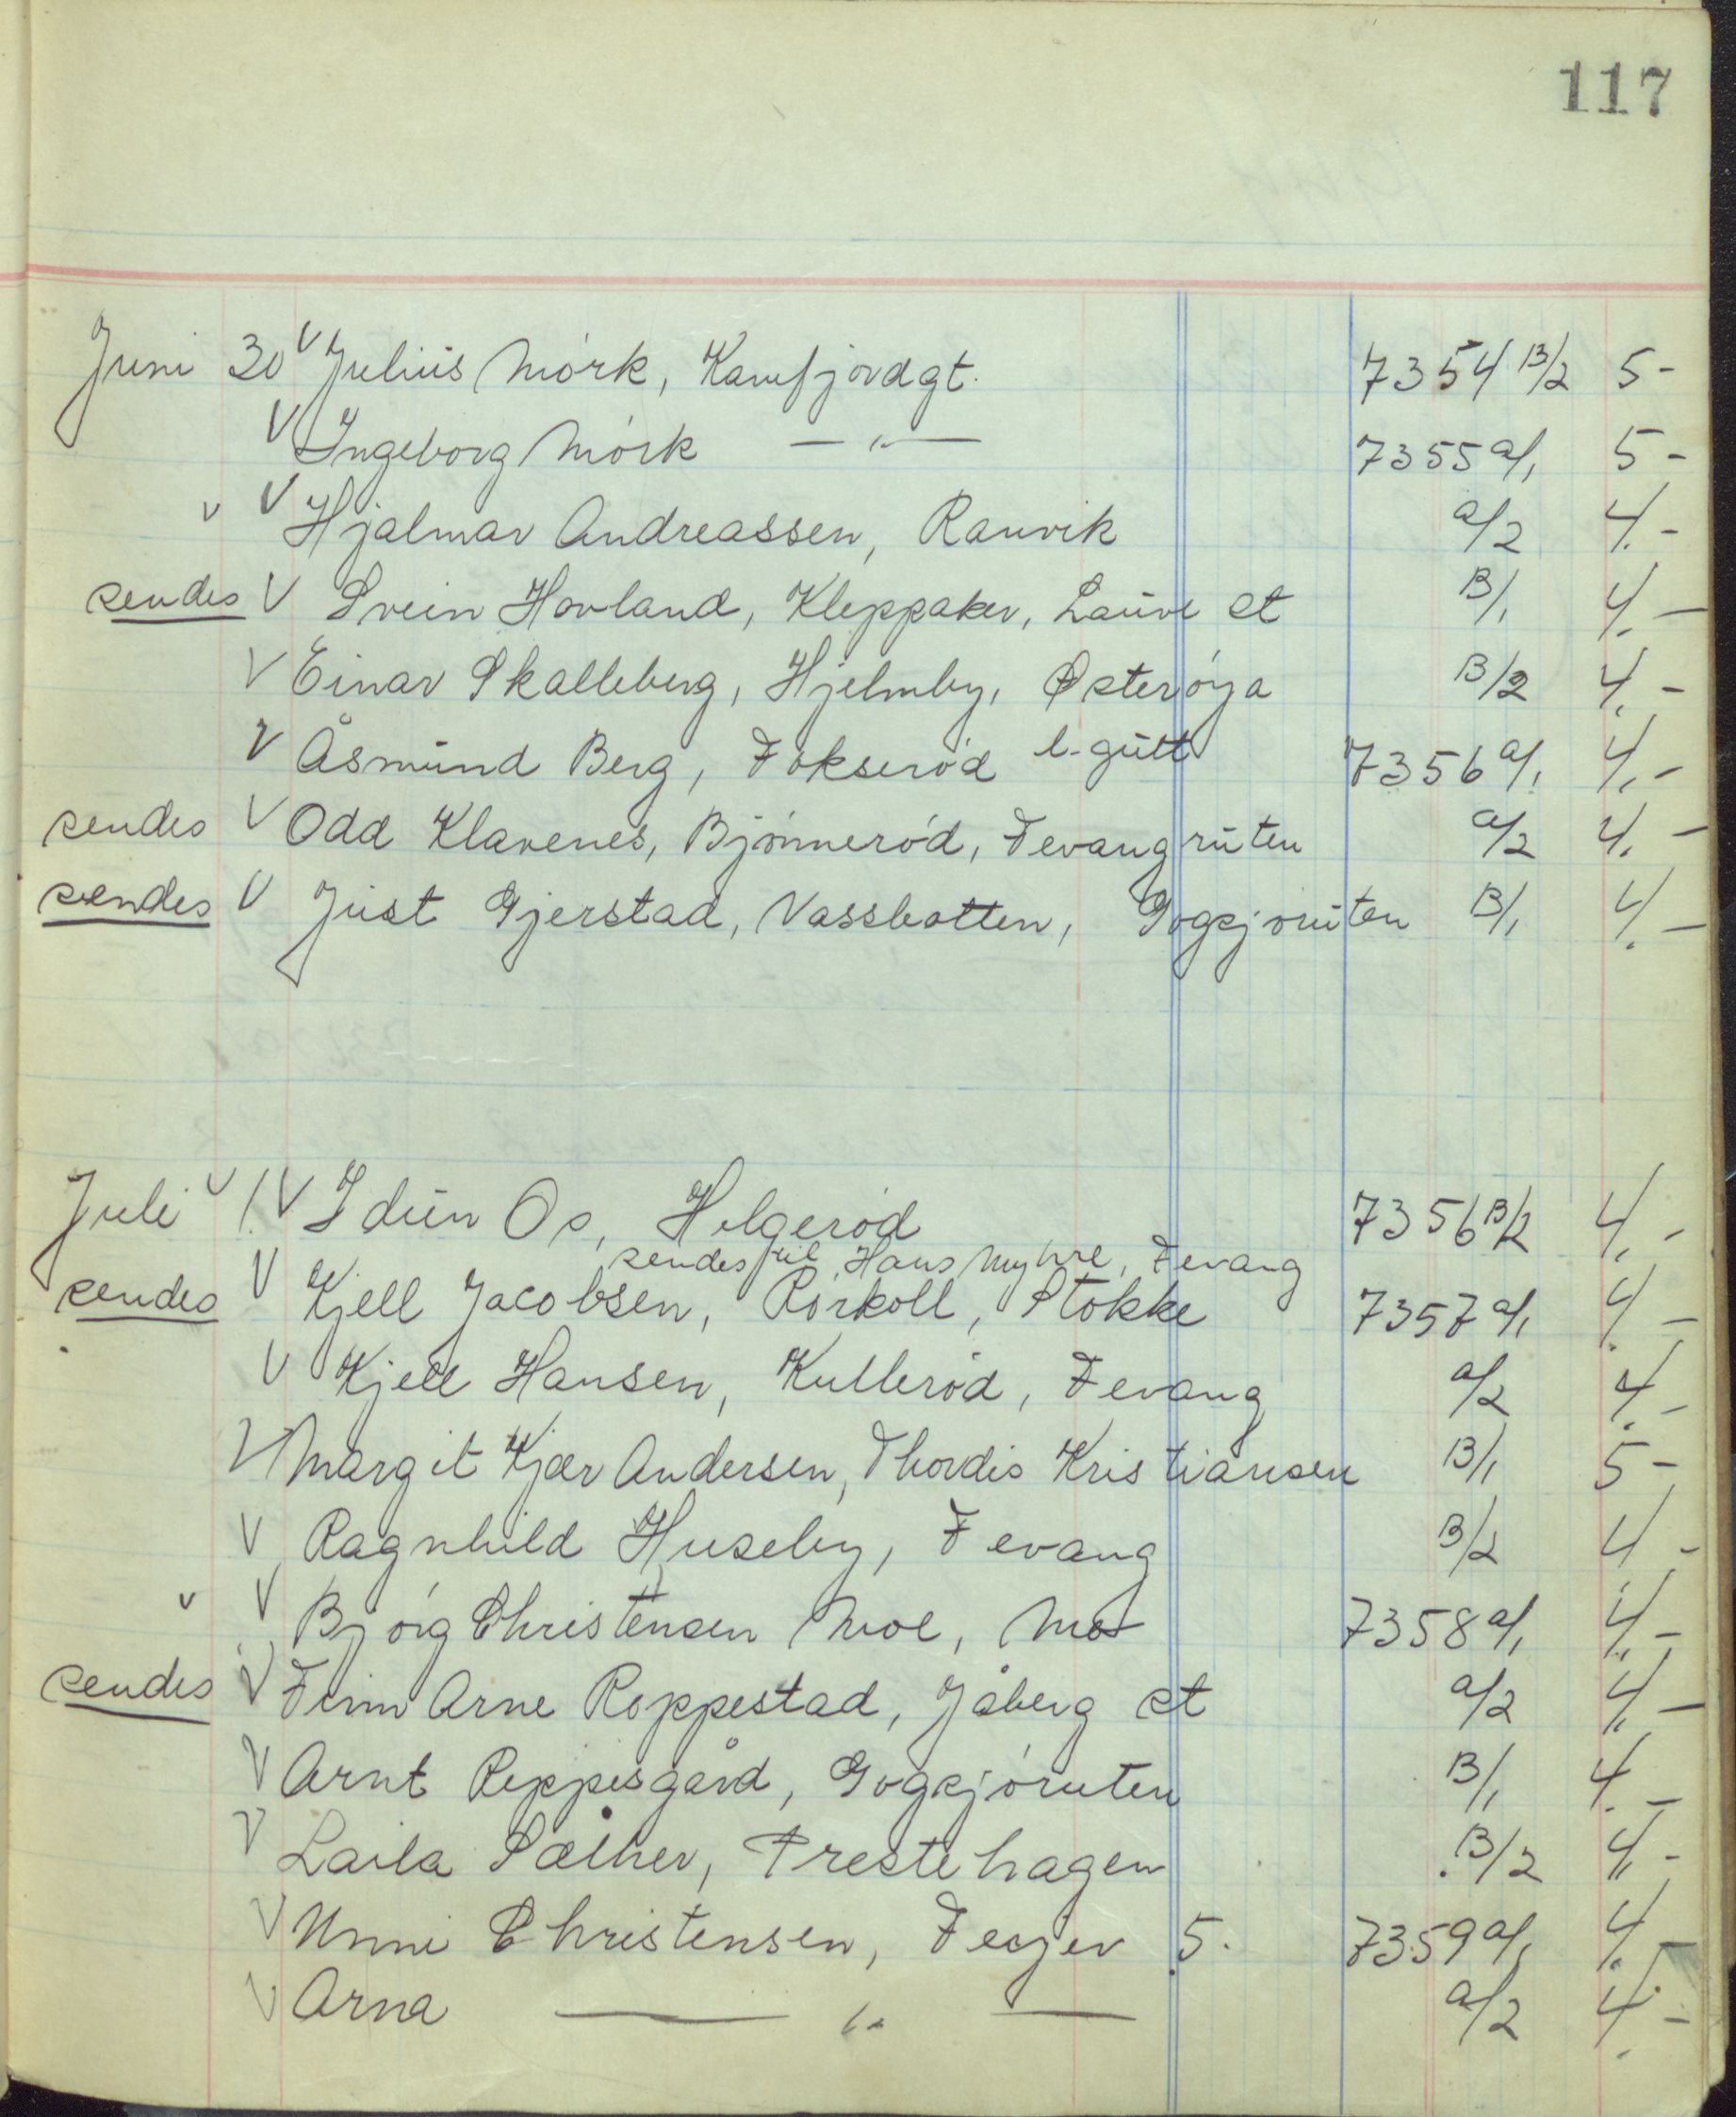 117
Juni 30 V Julius Mórk, Kamfjordgt. 7354 B/2 5-
V Ingeborg Mórk — " — 7355 a/1 5-
v V Hjalmar Andreassen, Ranvik a/2 4.-
sendes V Svein Hovland, Kleppaker, Lauve st B/1 4.-
V Einar Skalleberg, Hjelmby, Østeróya B/2 4.-
V Åsmund Berg, Fokseród l-gutt 7356 a/1 4.-
sendes V Odd Klavenes, Bjónneród, Fevangruten a/2 4.-
sendes V Just Gjerstad, Vassbotten, Gogsjóruten B/1 4.-
Juli v 1. V Idun Os, Helgeród 7356 B/2 4.-
sendes til Hans Myhre, Fevang
sendes V Kjell Jacobsen, Rórkoll, Stokke 7357 a/1 4.-
V Kjell Hansen, Kulleród, Fevang a/2 4.-
V Margit Kjær Andersen, Thordis Kristiansen B/1 5-
V Ragnhild Huseby, Fevang B/2 4-
v V Bjórg Christensen Moe, Mo 7358 a/1 4.-
sendes V Finn Arne Roppestad, Jåberg st a/2 4.-
V Arnt Reppesgård, Gogsjóruten B/1 4.-
V Laila Sæther, Prestehagen B/2 4.-
V Unni Christensen, Fesjer 5. 7359 a/1 4.-
V Arna — " — a/2 4.-